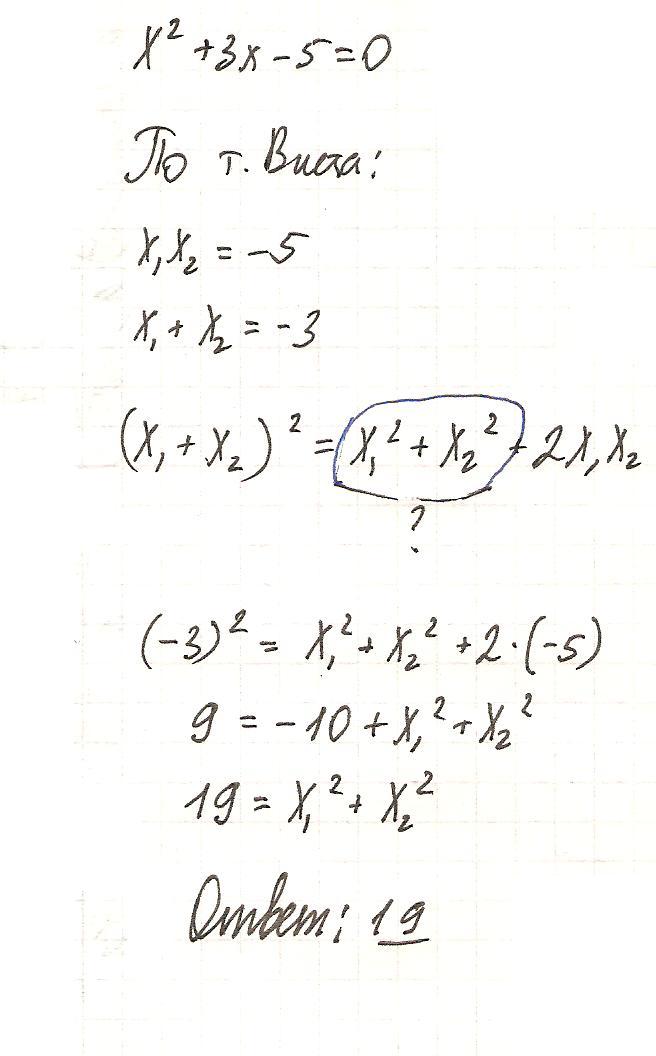 x² + 3x - 5 = 0
По т. Виета:
x₁x₂ = -5
x₁ + x₂ = -3
(x₁ + x₂)² = x₁² + x₂² + 2x₁x₂
?
(-3)² = x₁² + x₂² + 2·(-5)
9 = -10 + x₁² + x₂²
19 = x₁² + x₂²
Ответ: 19